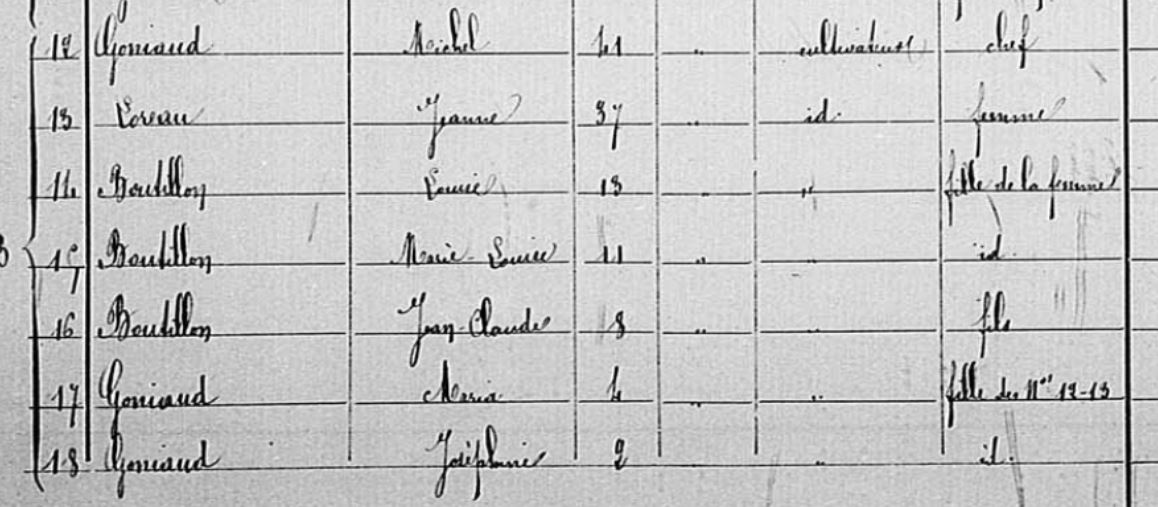 12 Goniaud Michel 41 " cultivateur chef
13 Loreau Jeanne 37 " id. femme
14 Boutillon Louise 13 " " fille de la femme
15 Boutillon Marie-Louise 11 " " id.
16 Boutillon Jean-Claude 8 " " fils
17 Goniaud Maria 4 " " fille des Nos 12-13
18 Goniaud Joséphine 2 " id.